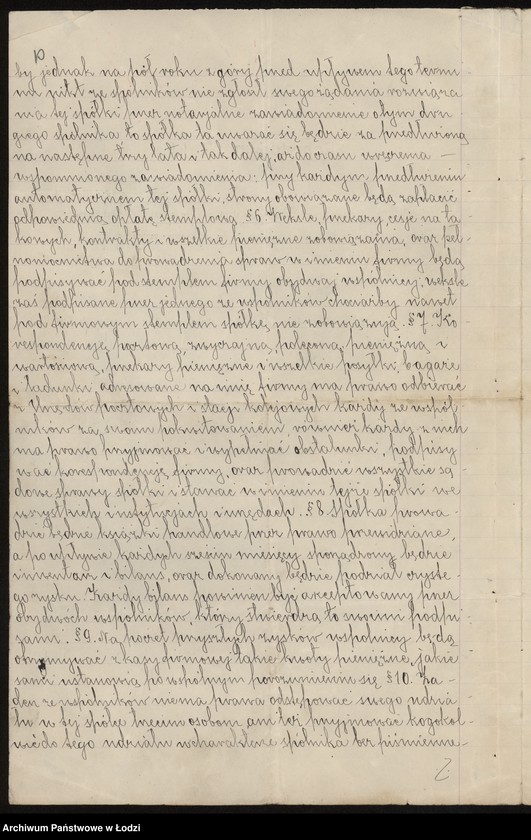 by jednak na pół roku z góry przed upływem tego termi-
nu nikt ze spólników nie zgłosi swego żądania rozwiąza-
nia tej spółki przez notaryalne zawiadomienie o tym dru-
giego spólnika to spółka ta uważać się będzie za przedłużoną
na następne trzy lata i tak dalej, aż do czasu uczynienia
wspomnionego zawiadomienia; przy każdym przedłużeniu
automatycznem tej spółki, strony obowiązane będą zapłacić
odpowiednią opłatę stemplową. §6. Weksle, przekazy, cesje na ta-
kowych, kontrakty i wszelkie pieniężne zobowiązania, oraz peł-
nomocnictwa do prowadzenia spraw w imieniu firmy będą
podpisywać pod stemplem firmy obydwaj wspólnicy, weksle
zaś podpisane przez jednego ze wspólników chociażby nawet
pod firmowym stemplem spółkę nie zobowiązują. §7. Ko-
respondencję pocztową, zwyczajną, poleconą, pieniężną i
wartościową, przekazy pieniężne i wszelkie posyłki, bagaże
i ładunki adresowane na imię firmy ma prawo odbierać
z Urzędów pocztowych i stacji kolejowych każdy ze wspól-
ników za swoim pokwitowaniem, również każdy z nich
ma prawo przyjmować i wypełniać obstalunki, podpisy-
wać korespondencję firmy, oraz prowadzić wszystkie są-
dowe sprawy spółki i stawać w imieniu tejże spółki we
wszystkich instytucjach i urzędach. §8. Spółka prowa-
dzić będzie książki handlowe przez prawo przewidziane,
a po upływie każdych sześciu miesięcy sporządzony będzie
inwentarz i bilans, oraz dokonany będzie podział czyste-
go zysku. Każdy bilans powinien być akceptowany przez
obydwóch wspólników, którzy stwierdzą to swoimi podpi-
sami. §9. Na poczet przyszłych zysków wspólnicy będą
otrzymywać z kasy firmowej takie kwoty pieniężne, jakie
sami ustanowią po wspólnym porozumieniu się. §10. Ża-
den ze wspólników niema prawa odstępować swego udzia-
łu w tej spółce trzecim osobom ani też przyjmować kogokol-
wiek do tego udziału w charakterze spólnika bez piśmienne-
2
Archiwum Państwowe w Łodzi